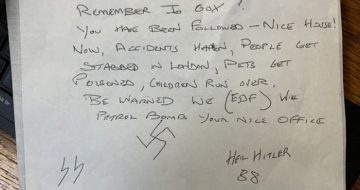 REMEMBER JO COX?
YOU HAVE BEEN FOLLOWED – NICE HOUSE!
NOW, ACCIDENTS HAPEN, PEOPLE GET
STABBED IN LONDON, PETS GET
POISONED, CHILDREN RUN OVER.
BE WARNED WE (EDF) WILL
PETROL BOMB YOUR NICE OFFICE
HEIL HITLER
88